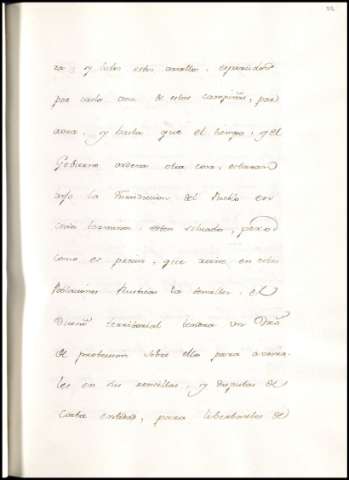 ra; y todos estos arvallos, esparcidos
por cada una de estas campiñas, por
aora, y hasta que el tiempo, y el
Gobierno ordena otra cosa, estaran
bajo la Jurisdiccion del Pueblo en
cuio termino esten situados, pero
como es preciso, que en estas
Poblaciones Rusticas la familia, el
Dueño territorial tendra un Dro
de proteccion sobre ella para
les en sus rencillas, y disputas de
corta entidad, para libertarles de